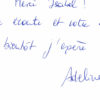 Merci Isabel !
écoute et votre
bientôt j'espère
Adeline